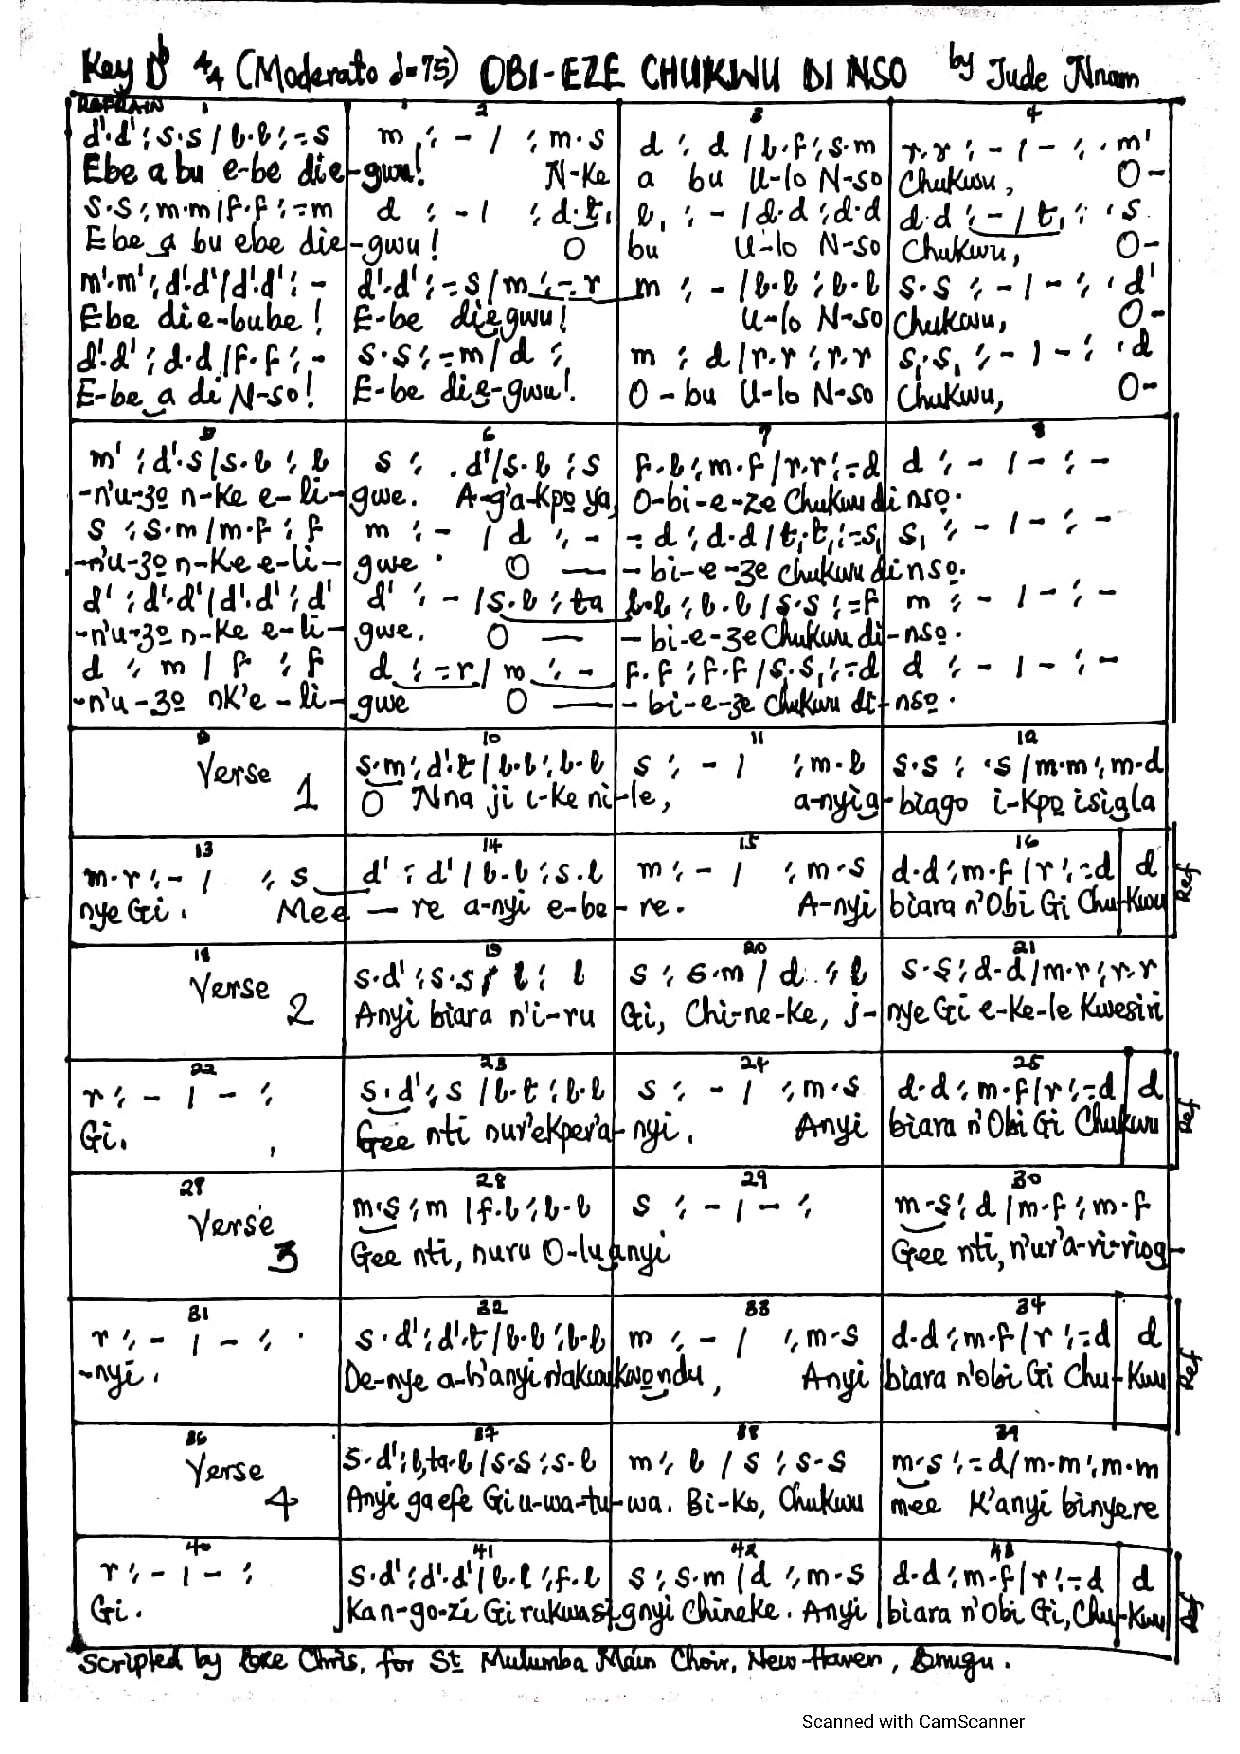 Key D♭ 4/4 (Moderato d=75) OBI-EZE CHUKWU DI NSO by Jude Nnam
REFRAIN 1 2 3 4
d'.d' : s.s / l.l : -.s m : - / : m.s d : d / l.f : s.m r.r : - / - : . m'
Ebe a bu e-be die-gwu! N-ke a bu U-lo N-so Chukwu, O-
s.s : m.m / f.f : -.m d : - / : d.t, l, : - / d.d : d.d d.d : - / t, : . s
Ebe a bu ebe die-gwu! O bu U-lo N-so Chukwu, O-
m'.m' : d'.d' / d'.d' : - d'.d' : -.s / m : -.r m : - / l.l : l.l s.s : - / - : . d'
Ebe die-bube! E-be diegwu! U-lo N-so Chukwu, O-
d'.d' : d.d / f.f : - s.s : -.m / d : m : d / r.r : r.r s,.s, : - / - : . d
E-be a di N-so! E-be die-gwu! O-bu U-lo N-so Chukwu, O-
5 6 7 8
m' : d'.s / s.l : l s : . d' / s.l : s f.l : m.f / r.r : -.d d : - / - : -
-n'u-zo n-ke e-li-gwe. A-g'a-kpọ ya, O-bi-e-ze Chukwu di nsọ.
s : s.m / m.f : f m : - / d : - -.d : d.d / t,.t, : -.s, s, : - / - : -
-n'u-zọ n-ke e-li-gwe. O — -bi-e-ze Chukwu di nso.
d' : d'.d' / d'.d' : d' d' : - / s.l : ta l.l : l.l / s.s : -.f m : - / - : -
-n'u-zọ n-ke e-li-gwe. O — -bi-e-ze Chukwu di-nsọ.
d : m / f : f d : -.r / m : - f.f : f.f / s.s, : -.d d : - / - : -
-n'u-zọ nk'e-li-gwe O — -bi-e-ze Chukwu di-nsọ.
9 10 11 12
Verse 1 s.m : d'.t / l.l : l.l s : - / : m.l s.s : .s / m.m : m.d
O Nna ji i-ke ni-le, a-nyi a-biago i-kpọ isi ala
13 14 15 16
m.r : - / : s d' : d' / l.l : s.l m : - / : m.s d.d : m.f / r : -.d d
nye Gi. Mee — re a-nyi e-be-re. A-nyi biara n'Obi Gi Chu-kwu Ref
18 19 20 21
Verse 2 s.d' : s.s / l : l s : s.m / d : l s.s : d.d / m.r : r.r
Anyi biara n'i-ru Gi, Chi-ne-ke, i-nye Gi e-ke-le kwesiri
22 23 24 25
r : - / - : s.d' : s / l.t : l.l s : - / : m.s d.d : m.f / r : -.d d
Gi. , Gee nti nur'ekper'a-nyi. Anyi biara n'Obi Gi Chukwu Ref
27 28 29 30
Verse 3 m.s : m / f.l : l.l s : - / - : m.s : d / m.f : m.f
Gee nti, nuru O-lu anyi Gee nti, n'ur'a-ri-rio a-
31 32 33 34
r : - / - : . s.d' : d'.t / l.l : l.l m : - / : m.s d.d : m.f / r : -.d d
-nyi. De-nye a-h'anyi n'akwukwo ndu, Anyi biara n'obi Gi Chu-kwu Ref
36 37 38 39
Verse 4 s.d' : l,ta.l / s.s : s.l m : l / s : s.s m.s : -.d / m.m : m.m
Anyi ga efe Gi u-wa-tu-wa. Bi-ko, Chukwu mee k'anyi binyere
40 41 42 43
r : - / - : s.d' : d'.d' / l.l : f.l s : s.m / d : m.s d.d : m.f / r : -.d d
Gi. kan-go-zi Gi rukwasi anyi Chineke. Anyi biara n'Obi Gi, Chu-kwu Ref
Scripted by Chris, for St Mulumba Main Choir, New-Haven, Enugu.
Scanned with CamScanner